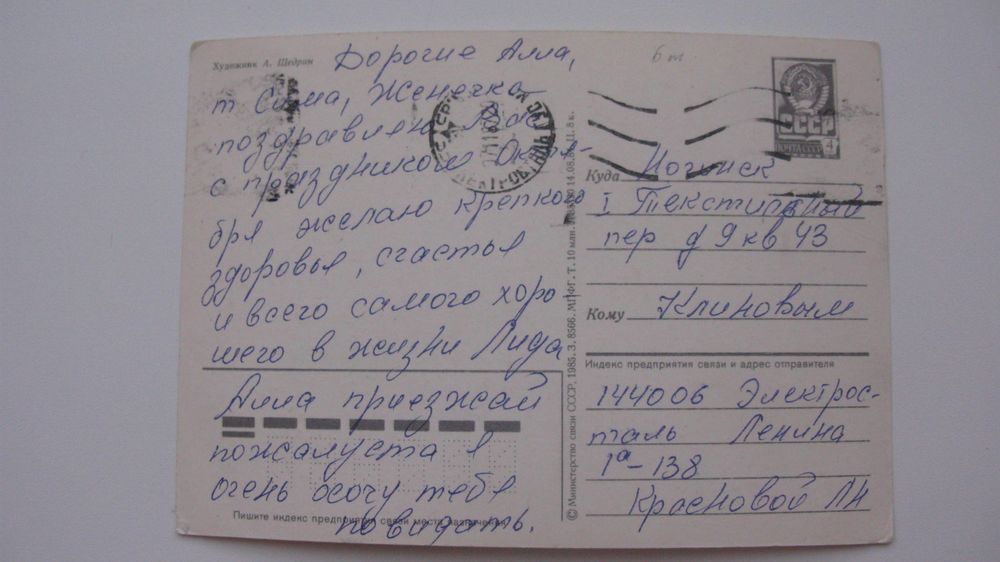 Художник А. Щедрин
Дорогие Алла,
т Сима, Женечка
поздравляю Вас
с праздником Октя-
бря желаю крепкого
здоровья, счастья
и всего самого хоро
шего в жизни Лида
Алла приезжай
пожалуста я
очень хочу тебя
повидать.
Пишите индекс предприятия связи места назначения
© Министерство связи СССР, 1985. З. 8566. МПФГ. Т. 10 млн. 14.08.85. Ц. 8 к.
6 т
СССР
ПОЧТА СССР
4
Куда Ногинск
I Текстильный
пер д 9 кв 43
Кому Климовым
Индекс предприятия связи и адрес отправителя
144006 Электрос-
таль Ленина
1а-138
Красновой ЛН